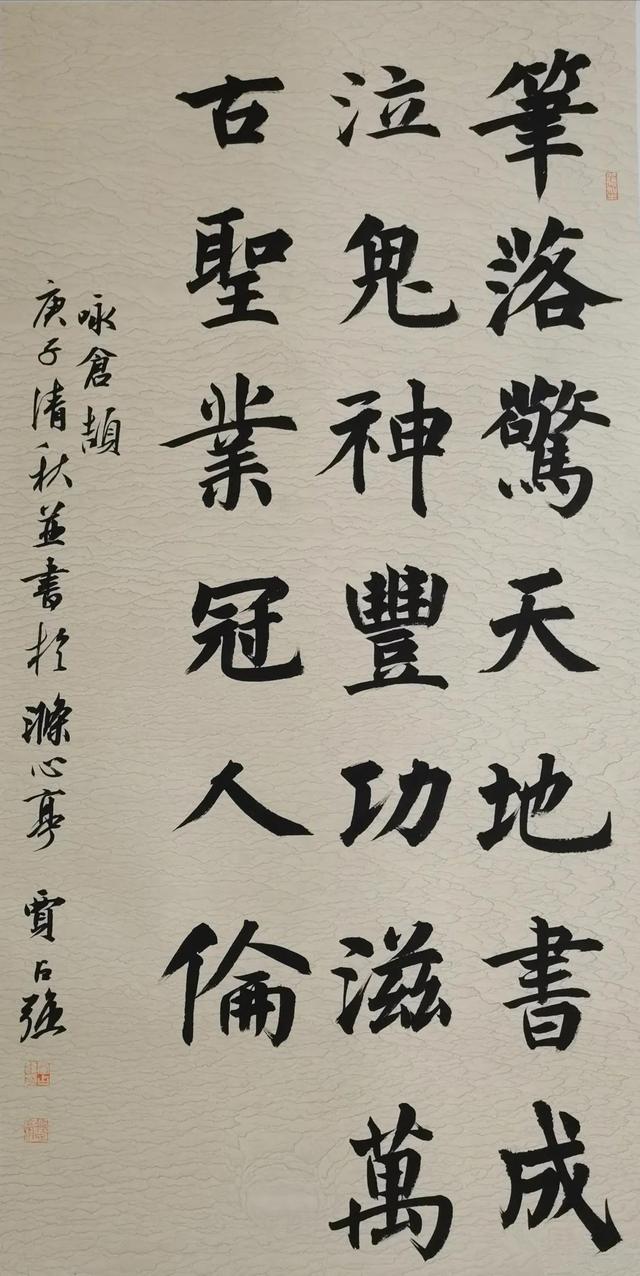 筆落驚天地書成
泣鬼神豐功滋萬
古聖業冠人倫
咏倉頡
庚子清秋並書於滌心亭 賈占強